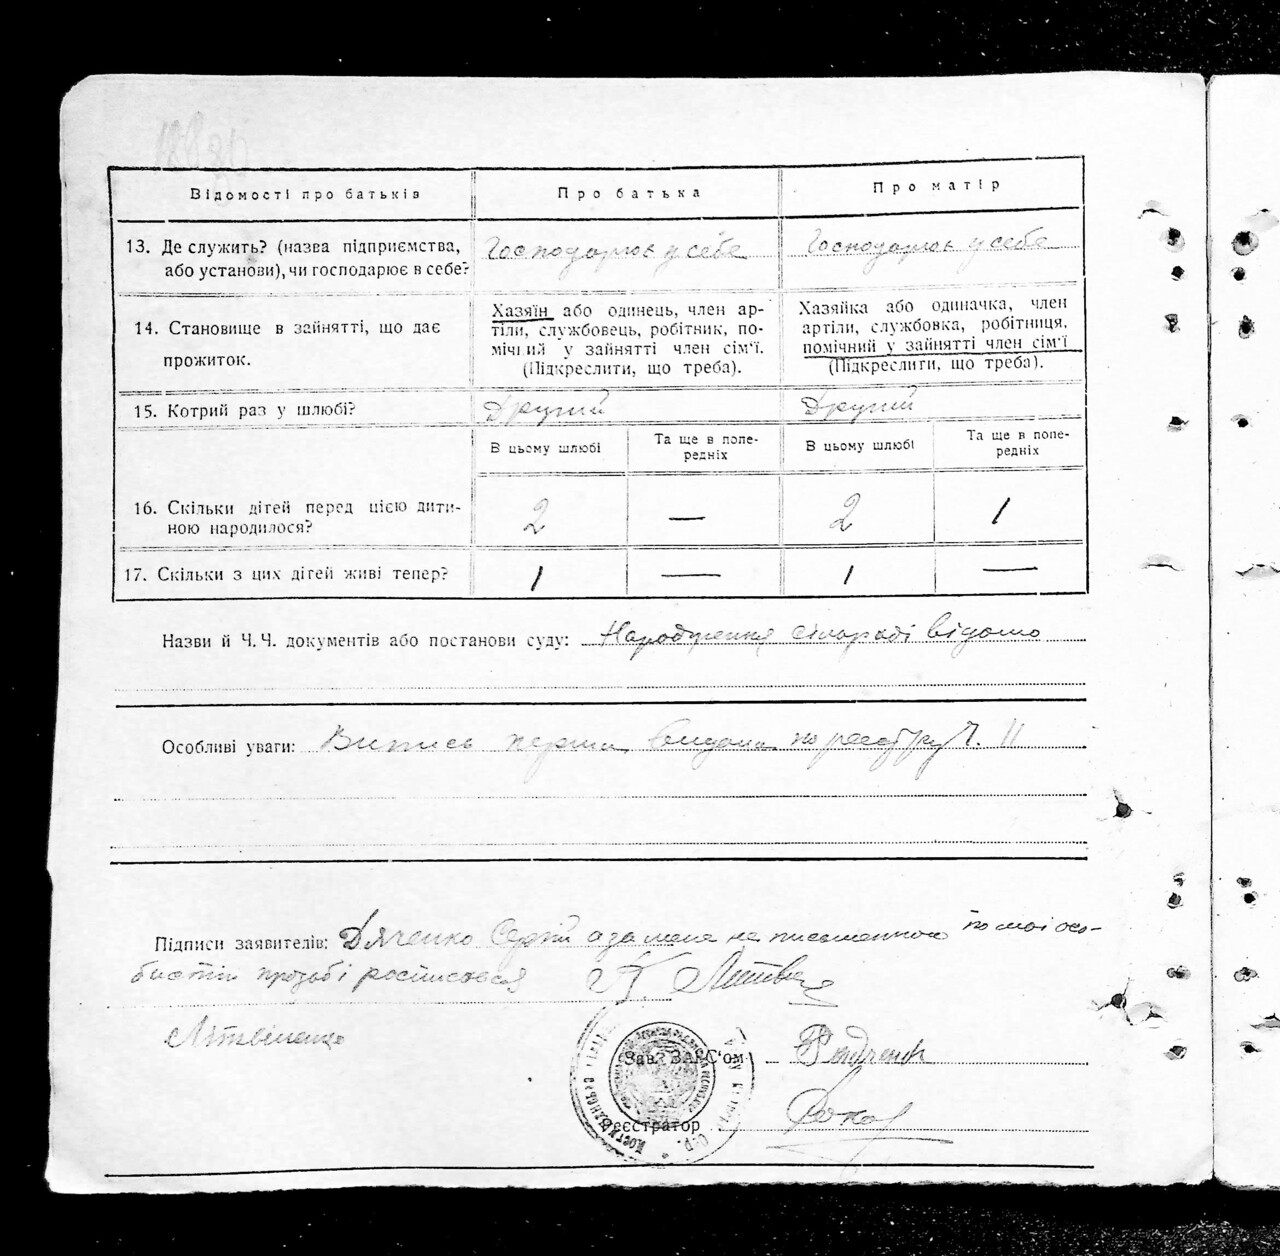 Відомості про батьків
Про батька
Про матір
13. Де служить? (назва підприємства,
або установи), чи господарює в себе?
Господарює у себе
Господарює у себе
14. Становище в зайнятті, що дає
прожиток.
Хазяїн або одинець, член ар-
тіли, службовець, робітник, по-
мічний у зайнятті член сім'ї.
(Підкреслити, що треба).
Хазяйка або одиначка, член
артіли, службовка, робітниця,
помічний у зайнятті член сім'ї
(Підкреслити, що треба).
15. Котрий раз у шлюбі?
Другий
Другий
В цьому шлюбі
Та ще в попе-
редніх
В цьому шлюбі
Та ще в попе-
редніх
16. Скільки дітей перед цією дити-
ною народилося?
2
—
2
1
17. Скільки з цих дітей живі тепер?
1
—
1
—
Назви й Ч.Ч. документів або постанови суду: Народження сільраді відомо
Особливі уваги: Випись перша видана по реєстру Ч. 11
Підписи заявителів: Дяченко Сергій а за мене не письменного по моі осо-
бистій прозьбі росписався
Літвіненко
Зав. ЗАГС'ом
Реєстратор